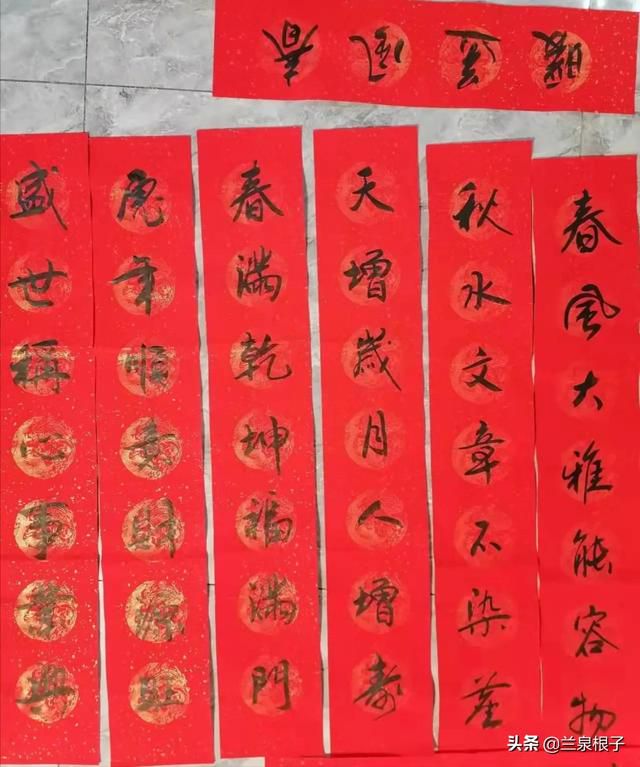 春 暖
春風大雅能容物
秋水文章不染塵
天增歲月人增寿
春滿乾坤福滿門
虎年順意財源旺
盛世稱心事業興
头条 @兰泉根子